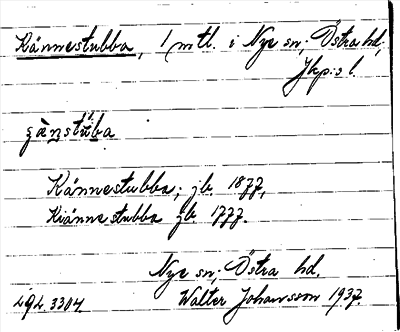 Kännestubba, 1 mtl. i Nye sn, Östra hd,
Jkp:s l.
Kännestubba; jb. 1877,
Kiännestubba jb. 1777.
Nye sn, Östra hd,
Walter Johansson 1937.